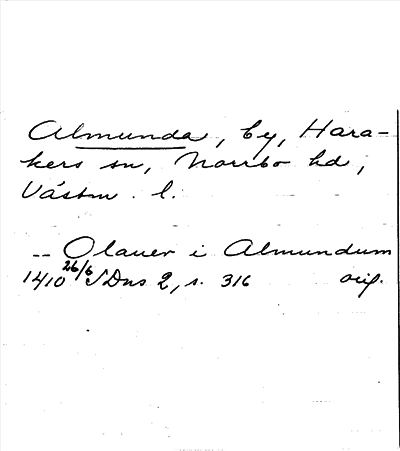 Almunda, by, Hara-
kers sn, Norrbo hd,
Västm. l.
-- Olauer i Almundum
1410 26/6 SDns 2, s. 316 orig.